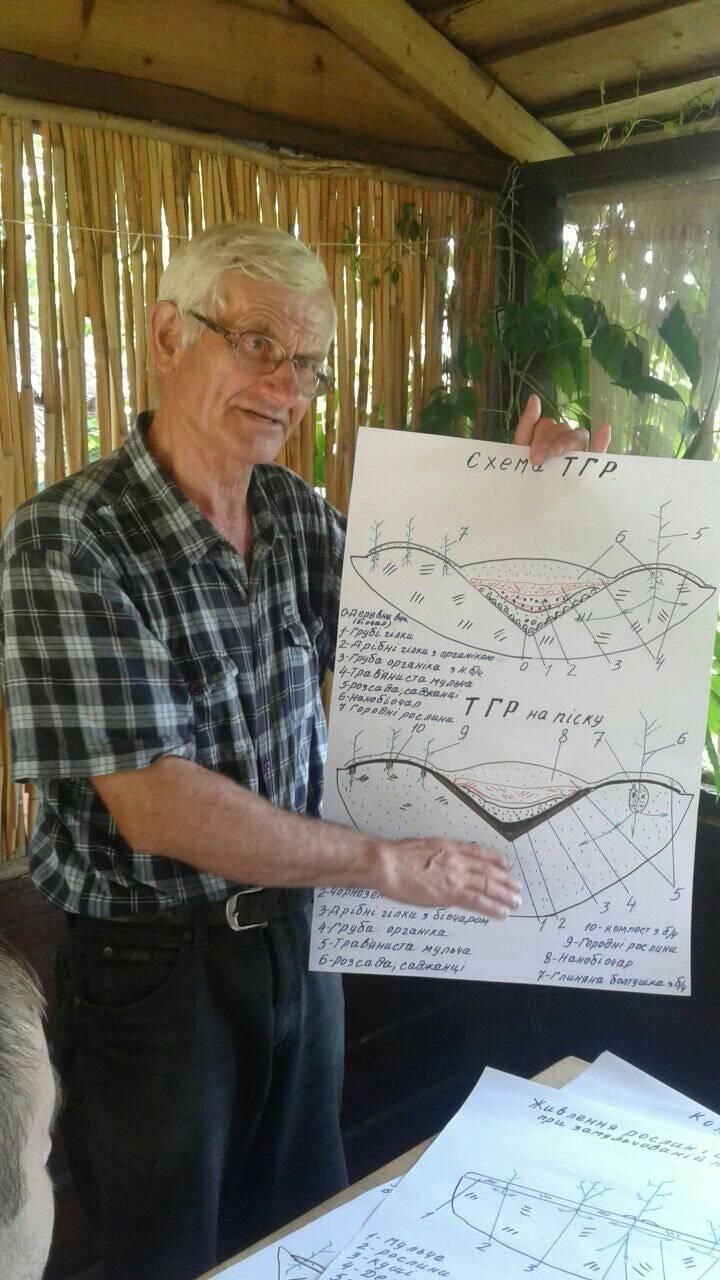 Схема ТГР
7
6
5
0-Деревне вуг.
(біочар)
1-Грубі гілки
2-Дрібні гілки з органікою
3-Груба органіка з н.б/ч
4-Трав'яниста мульча
5-розсада, саджанці
6-Нанобіочар
7 Городні рослини
0 1 2 3 4
ТГР на піску
10 9 8 7 6
1 2 3 4 5
2-Чорнозем
3-Дрібні гілки з біочаром
4-Груба органіка
5-Трав'яниста мульча
6-розсада, саджанці
10-компост з б/ч
9-Городні рослини
8-Нанобіочар
7-Глиняна болтушка з б/ч
Живлення рослин
при замульчованій
1
2
3
1-мульча
2-рослини
3-кущі
4
5